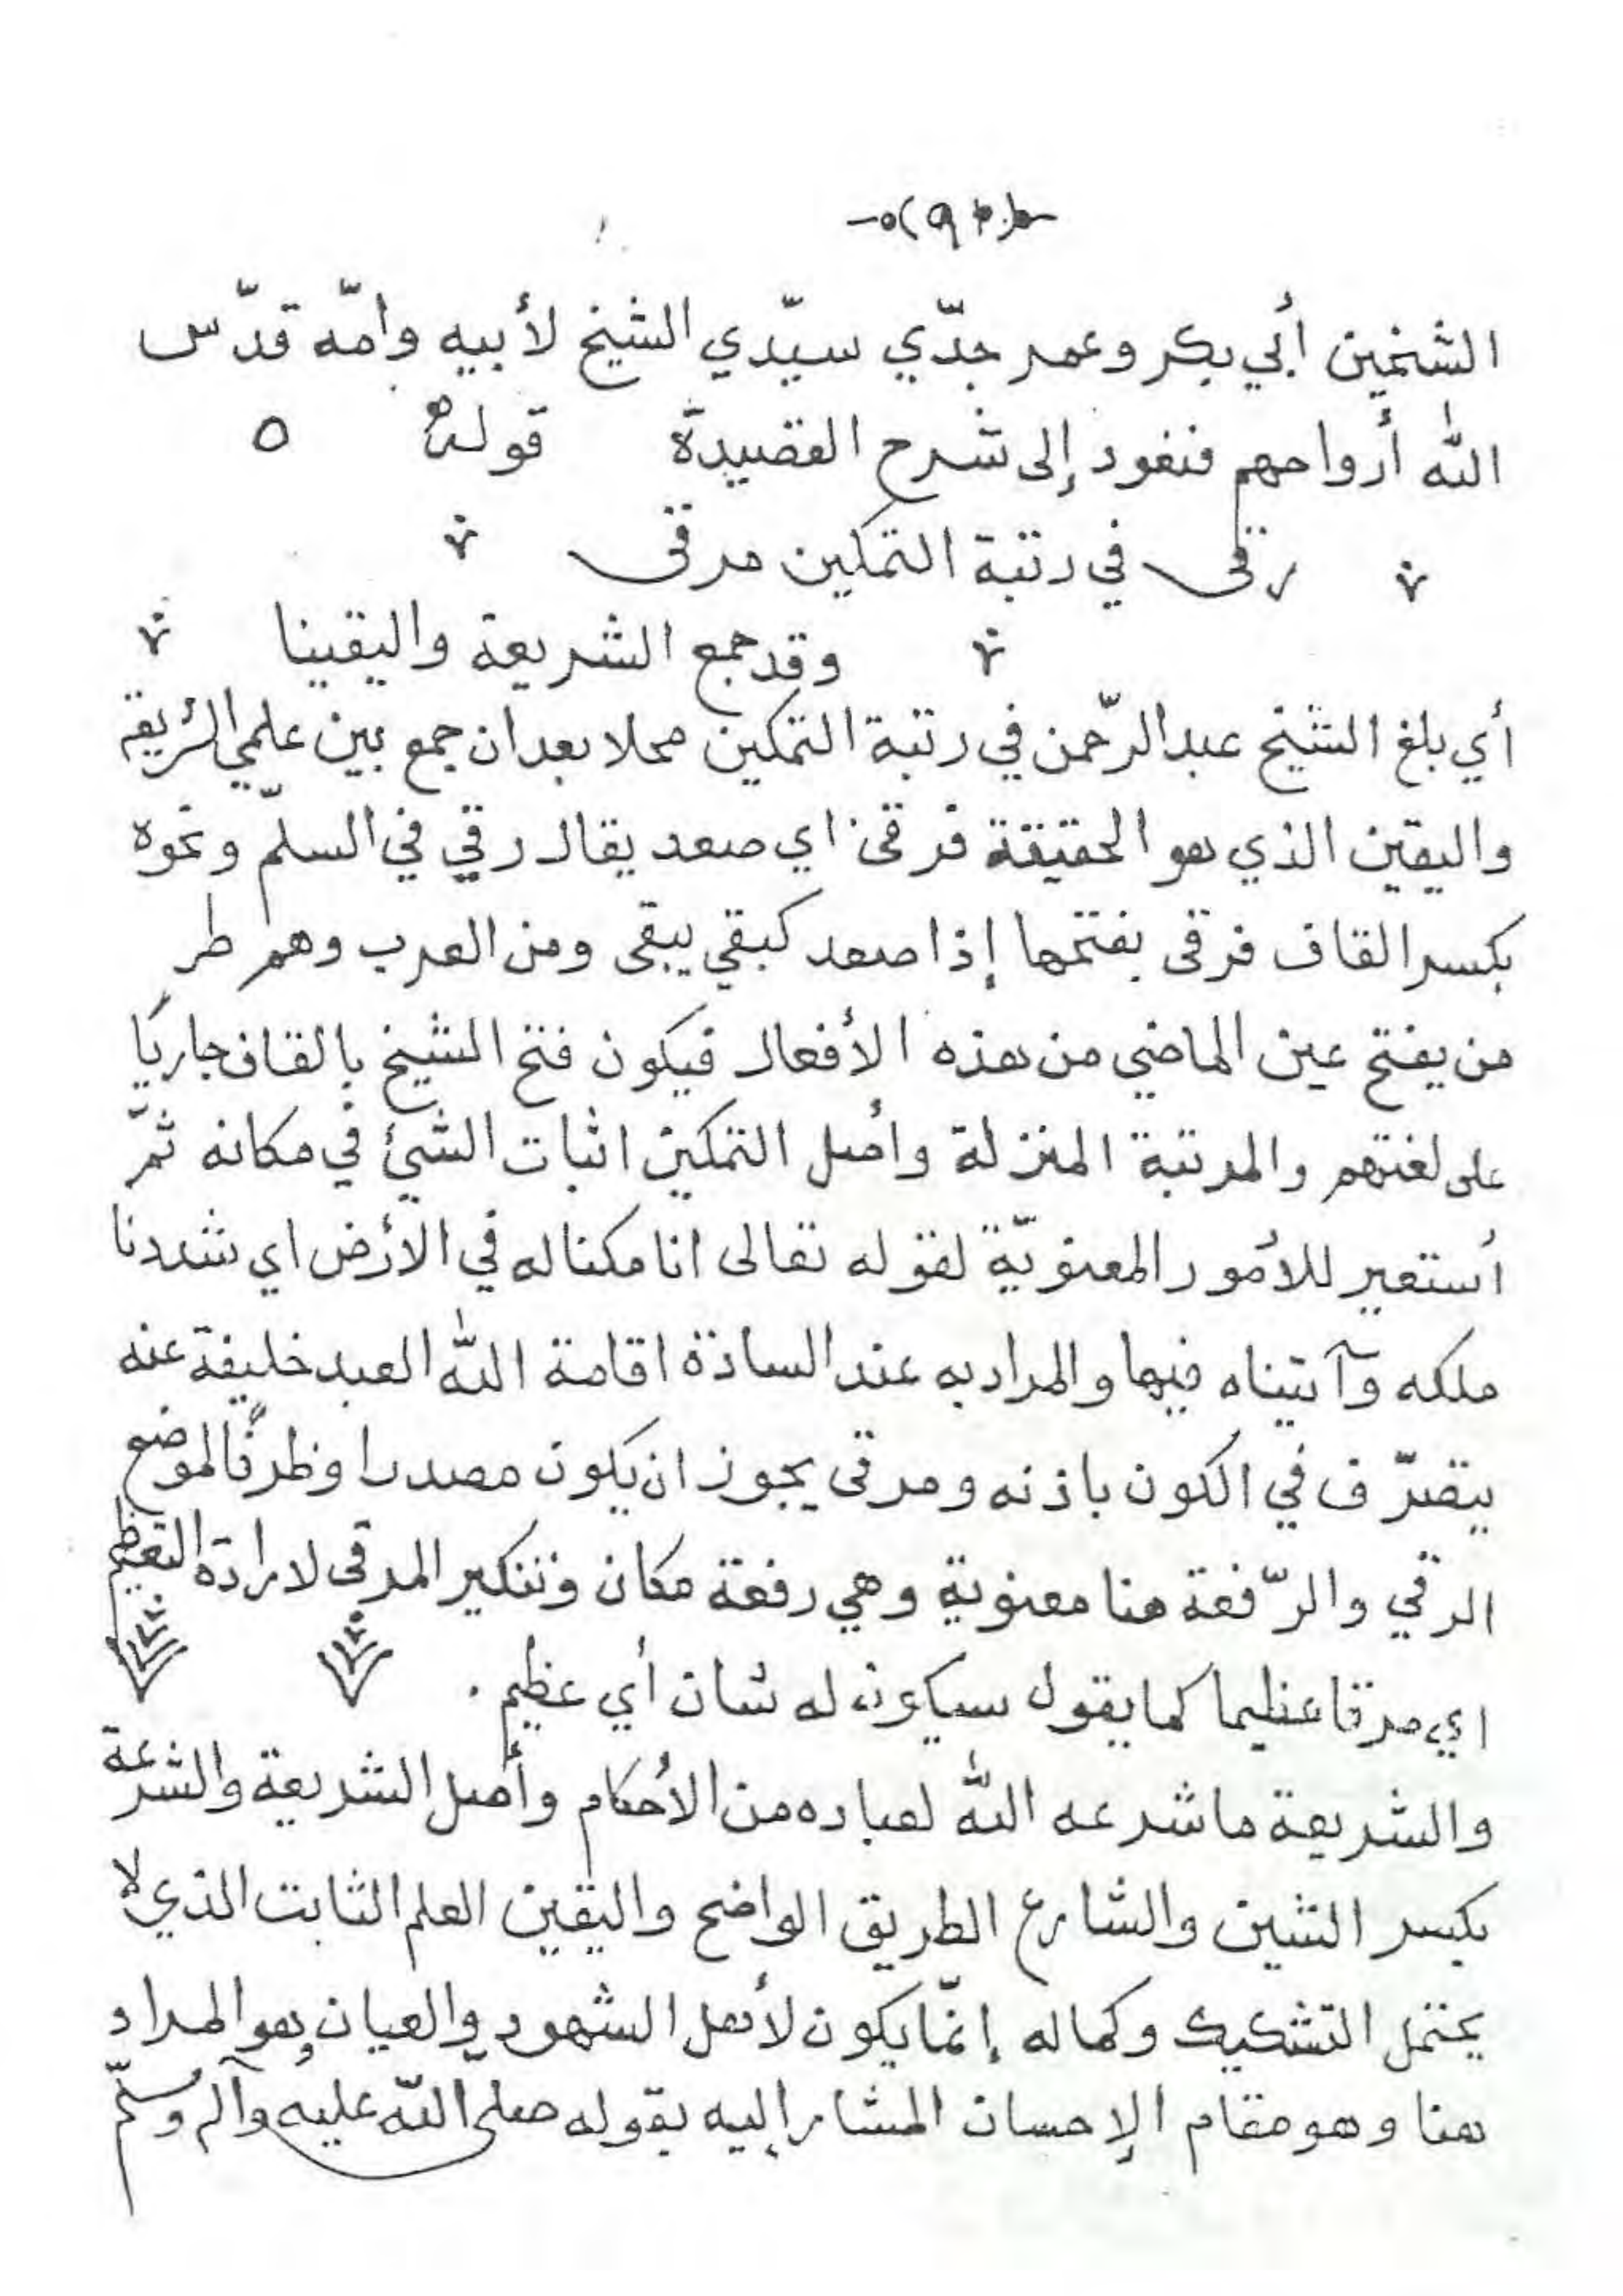 الشيخين أبي بكر وعمر جدّي سيّدي الشيخ لأبيه وامّه قدّس
الله أرواحهم فنعود إلى شرح القصيدة قوله ٥
رقى في رتبة التمكين مرقى
وقد جمع الشريعة واليقينا
أي بلغ الشيخ عبد الرّحمن في رتبة التمكين محلا بعد ان جمع بين علمي الشريعة
واليقين الذي هو الحقيقة فرقى اي صعد يقال رقي في السلّم ونحوه
بكسر القاف فرقى بفتحها إذا صعد كبقي يبقى ومن العرب وهم طر
من يفتح عين الماضي من هذه الأفعال فيكون فتح الشيخ بالقاف جاريًا
على لغتهم والمرتبة المنزلة وأصل التمكين اثبات الشيئ في مكانه ثمّ
أستعير للأمور المعنويّة لقوله تعالى انا مكنا له في الأرض اي شددنا
ملكه وآتيناه فيها والمراد به عند السادة اقامة الله العبد خليفة عنه
يتصرّف في الكون باذنه ومرقى يجوز ان يكون مصدرا وظرفًا لموضع
الرقي والرّفعة هنا معنوية وهي رفعة مكان وتنكير المرقى لارادة التعظيم
اي مرقا عظيما كما يقول سيكون له شان أي عظيم .
والشريعة ما شرعه الله لعباده من الأحكام وأصل الشريعة والشرعة
بكسر الشين والشارع الطريق الواضح واليقين العلم الثابت الذي لا
يحتمل التشكيك وكماله إنّما يكون لأهل الشهود والعيان وهو المراد
هنا وهو مقام الإحسان المشار إليه بقوله صلى الله عليه وآله وسلّم